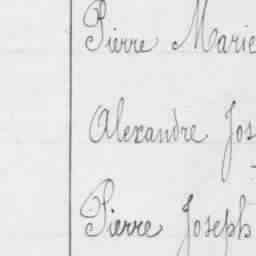 Pierre Marie
Alexandre Jos
Pierre Joseph